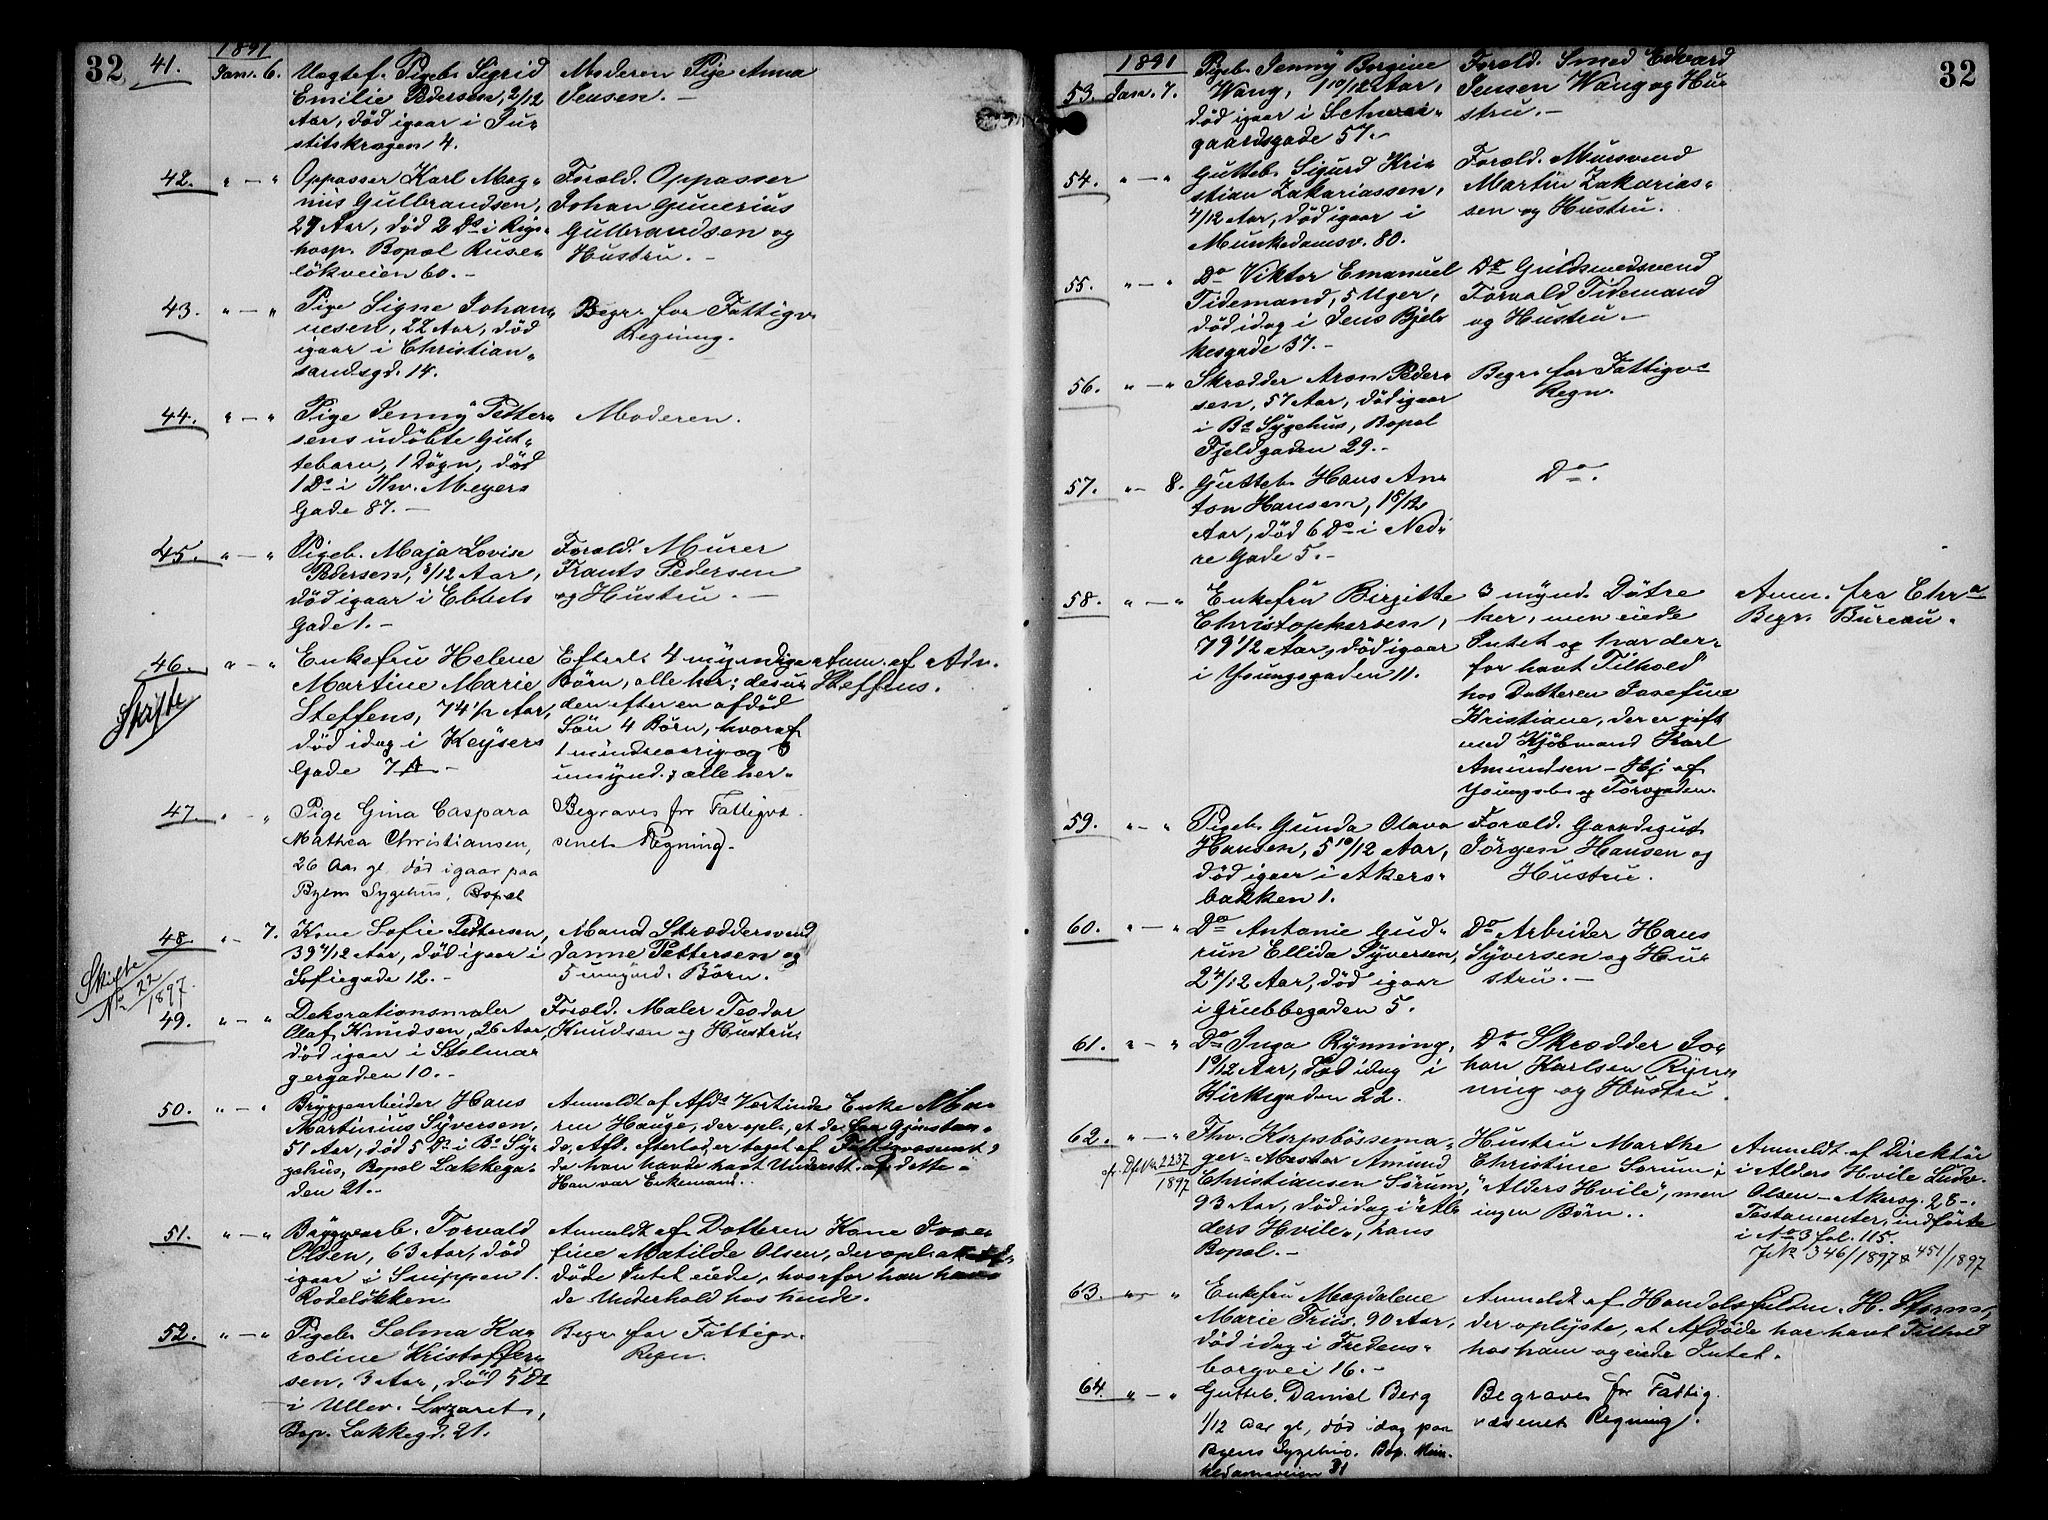 32
1891
41. Jan. 6. Uægtef. Pigeb. Sigrid
Emilie Pedersen, 2/12
Aar, död igaar i Ju-
stitskragen 4.
Moderen Pige Anna
Jensen. -
42. " - " Oppasser Karl Mag-
nus Gulbrandsen,
29 Aar, död 2 Ds i Rigs-
hosp. Bopæl Ruse-
lökveien 60. -
Foræld. Oppasser
Johan Gunerius
Gulbrandsen og
Hustru. -
43. " - " Pige Signe Johan-
nesen, 22 Aar, död
igaar i Christian-
sandsgd. 14.
Begr. for Fattigv.
Regning.
44. " - " Pige Jenny Petter-
sens udöbte Gut-
tebarn, 1 Dögn, död
1 Ds i Thv. Meyers
Gade 87. -
Moderen.
45. " - " Pigeb. Maja Lovise
Pedersen, 8/12 Aar,
död igaar i Ebbels
Gade 1. -
Foræld. Murer
Frants Pedersen
og Hustru. -
46. " - " Enkefru Helene
Martine Marie
Steffens, 74 1/2 Aar,
död idag i Keysers
Gade 7A -
Skifte
Efterl. 4 myndige
Börn, alle her; desu-
den efter en afdöd
Sön 4 Börn, hvoraf
1 mindreaarig og 3
umynd.; alle her.
Anm. af Adv.
Steffens.
47. " - " Pige Gina Caspara
Mathea Christiansen,
26 Aar gl. död igaar paa
Byens Sygehus, Bopæl
Begraves for Fattigvæ-
senets Regning.
48. " - 7. Kone Sofie Pettersen,
39 4/12 Aar, död igaar i
Sofiegade 12. -
Skifte
No 22/1897.
Mand Skræddersvend
Janne Pettersen og
5 umynd. Börn.
49. " - " Dekorationsmaler
Olaf Knudsen, 26 Aar,
död igaar i Stolma-
gergaden 10. -
Foræld. Maler Teodor
Knudsen og Hustru
50. " - " Bryggearbeider Hans
Martinius Syversen,
51 Aar, död 5 Ds i Bs Sy-
gehus, Bopæl Lakkega-
den 21. -
Anmeldt af Afds Vertinde Enke Ma-
ren Hauge, der opl., at de faa Gjenstan-
de, Afd. efterlod, er taget af Fattigvæsenet,
da han havde havt Understt. af dette -
Han var Enkemand.
51. " - " Bryggearb. Torvald
Olsen, 63 Aar, död
igaar i Snippen 1.
Rodelökken
Anmeldt af Datteren Kone Jose-
fine Matilde Olsen, der opl. at Af-
döde Intet eiede, hvorfor han hav-
de Underhold hos hende.
52. " - " Pigeb. Selma Ka-
roline Kristoffer-
sen, 3 Aar, död 5 Ds
i Ullev. Lazaret,
Bop. Lakkegd. 21.
Begr. for Fattigv.
Regn.
32
1891
53. Jan. 7. Pigeb. Jenny Borgine
Wang, 1 10/12 Aar,
död igaar i Schwei-
gaardsgade 57. -
Foræld. Smed Edvard
Jensen Wang og Hu-
stru. -
54. " - " Gutteb. Sigurd Kri-
stian Zakariassen,
4/12 Aar, död igaar i
Munkedamsv. 80.
Foræld. Mursvend
Martin Zakarias-
sen og Hustru.
55. " - " Do Viktor Emanuel
Tidemand, 5 Uger,
död idag i Jens Bjel-
kesgade 37. -
Do Guldsmedsvend
Torvald Tidemand
og Hustru. -
56. " - " Skrædder Aron Peder-
sen, 57 Aar, död igaar
i Bs Sygehus, Bopæl
Fjeldgaden 29. -
Begr. for Fattigvs
Regn.
57. " - 8. Gutteb. Hans An-
ton Hansen, 1 8/12
Aar, död 6 Ds i Ned-
re Gade 5. -
Do.
58. " - " Enkefru Birgitte
Christophersen,
79 1/2 Aar, död igaar
i Youngsgaden 11.
3 mynd. Döttre
her, men eiede
Intet og har der-
for havt Tilhold
hos Datteren Josefine
Kristiane, der er gift
med Kjöbmand Karl
Amundsen - Hj. af
Youngsb. og Torvgaden.
Anm. fra Chra
Begr. Bureau.
59. " - " Pigeb. Gunda Olava
Hansen, 5 10/12 Aar,
död igaar i Akers-
bakken 1.
Foræld. Gaardsgut
Jörgen Hansen og
Hustru.
60. " - " Do Antonie Gud-
run Ellida Syversen,
2 4/12 Aar, död igaar
i Grubbegaden 5.
Do Arbeider Hans
Syversen og Hu-
stru. -
61. " - " Do Inga Rynning,
10/12 Aar, död idag i
Kirkegaden 22.
Do Skrædder Jo-
han Karlsen Ryn-
ning og Hustru.
62. " - " Fhv. Korpsbössema-
ger-Mester Amund
Christiansen Sörum,
93 Aar, död idag i "Al-
ders Hvile", hans
Bopæl. -
2237
1897
Hustru Marthe
Christine Sorum i
"Alders Hvile", men
ingen Börn. .
Anmeldt af Direktör
i Alders Hvile Ludv.
Olsen - Akersg. 28 -.
Testamenter, indförte
i No 3 fol. 115.
JN 346/1897 & 451/1897
63. " - " Enkefru Magdalene
Marie Friis, 90 Aar,
död idag i Fredens-
borgvei 16. -
Anmeldt af Handelsfuldm. H. Storm,
der oplyste, at Afdöde har havt Tilhold
hos ham og eiede Intet.
64. " - " Gutteb. Daniel Berg
1/12 Aar gl, död idag paa
Byens Sygehus. Bop. Mun-
kedamsveien 31
Begraves for Fattig-
væsenets Regning.